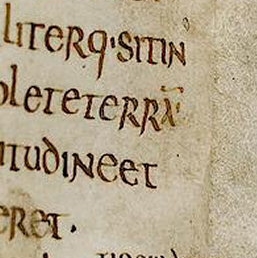 literq·sitin
oleteterrā
itudineet
eret·